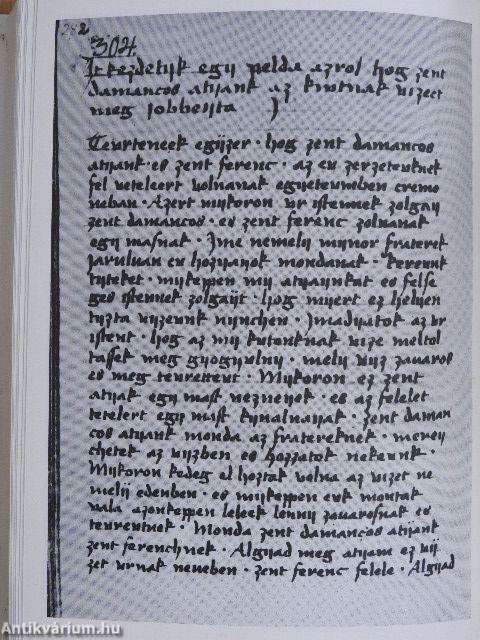 282
304
It kezdetijk egij pelda azrol hog zent
damancos atijank az kwtnak vizeet
meg jobbeijta
Teurteneek egijzer · hog zent damancos
atijank · es zent ferenc · az eu zerzeteuknek
fel veteleert volnanak egijeteumben cremo
neban · Azert mijkoron vr istennek zolgaij
zent damancos · es zent ferenc zolnanak
egij masnak · Ime nemelij mijnor fraterek
jaruluan eu hozijajok mondanak · kereunk
tijteket · mijkeppen mij atijankat es felse
ges istennek zolgaijt · hog mijert ez helijen
tijzta vijzeunk nijnchen · Imadijatok az vr
istent · hog az mij kutonknak vize meltol
tassek meg gijogijvlnij · melij vijz zauaros
es meg teurettevt · Mijkoron ez zent
atijak egij mast nezneijek · es az felelet
tetelert egij mast kijnalnaijak · zent daman
cos atijank monda az fratereknek · mereij
chetek az vijzben es hozzatok nekeunk ·
Mijkoron kedeg el hoztak volna az vizet ne
melij edenben · es mijkeppen euk montak
vala azonkeppen leleek lennij zauarosnak es
teureutnek · Monda zent damancos atijank
zent ferenchnek · Algijad meg atijam ez vij
zet vrnak neueben · zent ferenc felele · Algijad
Antikvárium.hu